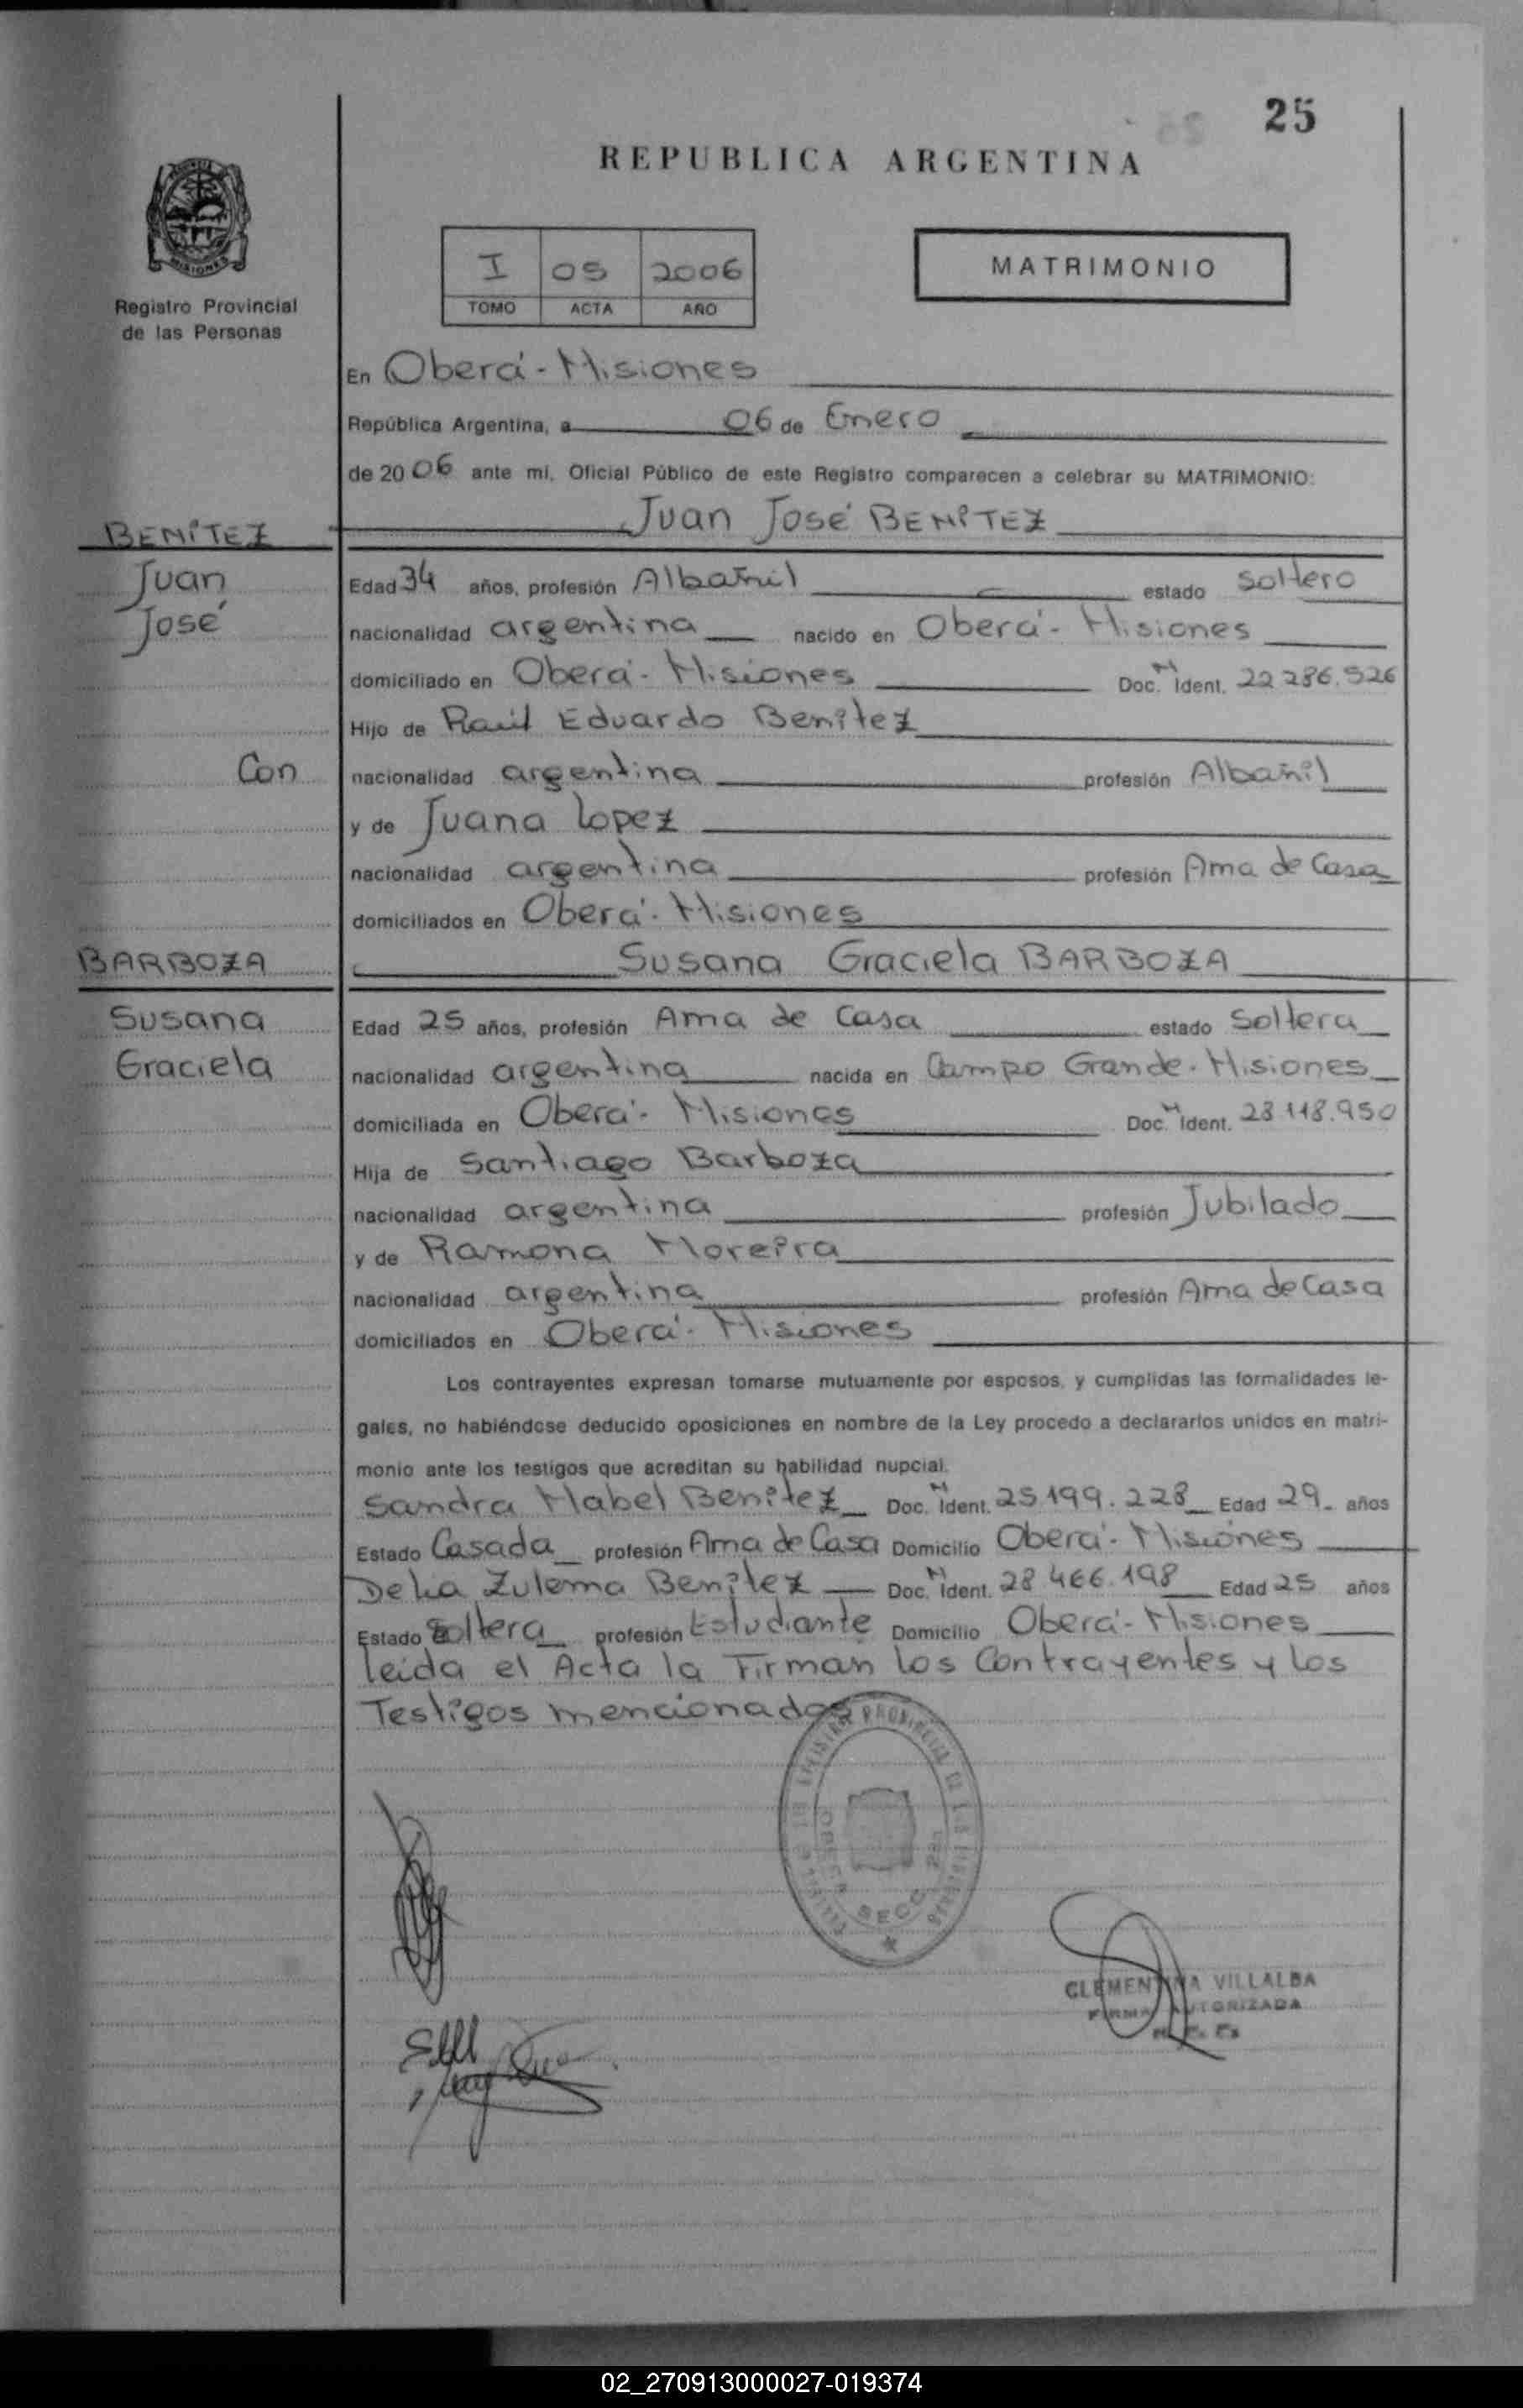 25
REPUBLICA ARGENTINA
MISIONES
Registro Provincial
de las Personas
I 05 2006
TOMO ACTA AÑO
MATRIMONIO
En Oberá - Misiones
República Argentina, a 06 de Enero
de 2006 ante mi, Oficial Público de este Registro comparecen a celebrar su MATRIMONIO:
Juan José BENÍTEZ
BENÍTEZ
Juan
José
Edad 34 años, profesión Albañil estado soltero
nacionalidad argentina nacido en Oberá - Misiones
domiciliado en Oberá - Misiones Doc. N Ident. 22 286.526
Hijo de Raúl Eduardo Benítez
Con
nacionalidad argentina profesión Albañil
y de Juana Lopez
nacionalidad argentina profesión Ama de Casa
domiciliados en Oberá - Misiones
BARBOZA
Susana Graciela BARBOZA
Susana
Graciela
Edad 25 años, profesión Ama de Casa estado Soltera
nacionalidad argentina nacida en Campo Grande - Misiones
domiciliada en Oberá - Misiones Doc. N Ident. 28 118.950
Hija de Santiago Barboza
nacionalidad argentina profesión Jubilado
y de Ramona Moreira
nacionalidad argentina profesión Ama de Casa
domiciliados en Oberá - Misiones
Los contrayentes expresan tomarse mutuamente por esposos, y cumplidas las formalidades le-
gales, no habiéndose deducido oposiciones en nombre de la Ley procedo a declararlos unidos en matri-
monio ante los testigos que acreditan su habilidad nupcial.
Sandra Mabel Benítez Doc. N Ident. 25 199.228 Edad 29 años
Estado Casada profesión Ama de Casa Domicilio Oberá - Misiones
Delia Zulema Benítez Doc. N Ident. 28 466.198 Edad 25 años
Estado Soltera profesión Estudiante Domicilio Oberá - Misiones
leída el Acta la Firman los Contrayentes y los
Testigos mencionados
SECC.
CLEMENTINA VILLALBA
FIRMA AUTORIZADA
02_270913000027-019374